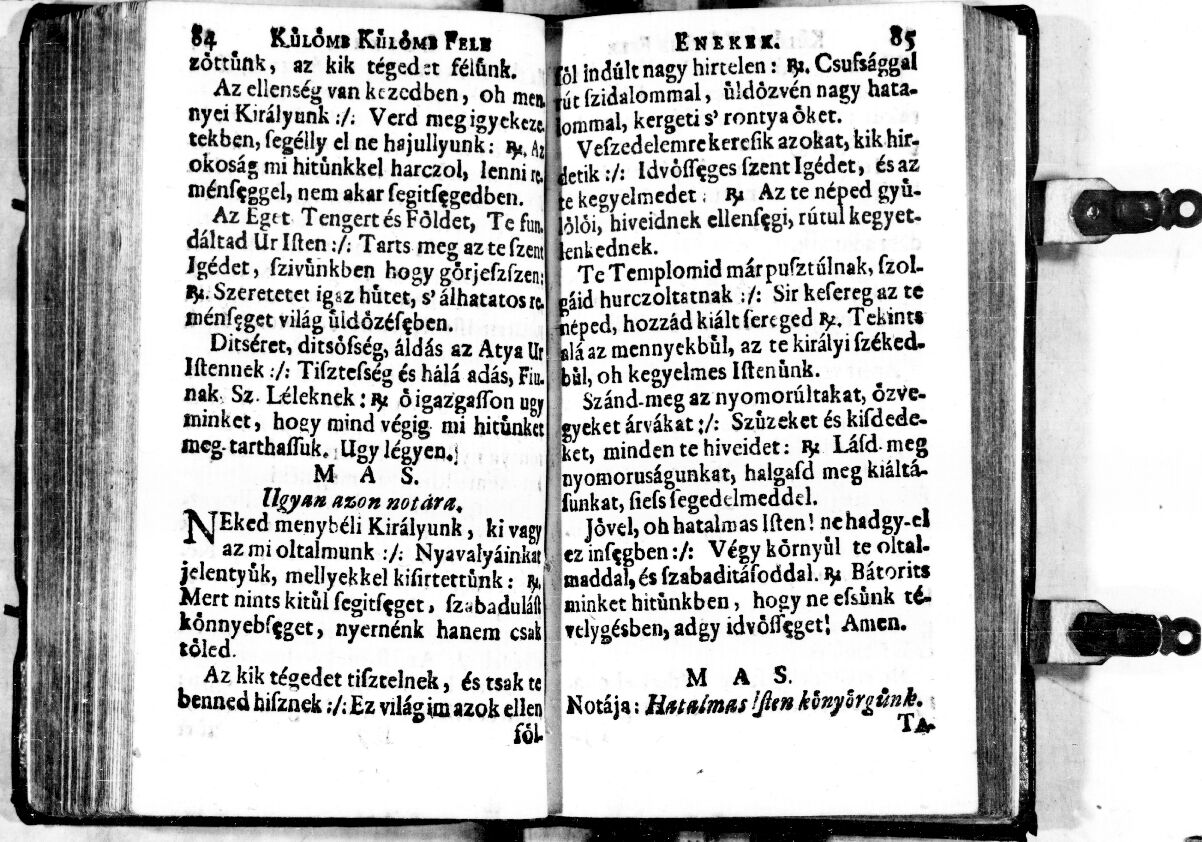 84 Kůlômb Kůlômb Fele
zôttůnk, az kik tégedet félůnk.
Az ellenség van kezedben, oh men
nyei Királyunk :/: Verd meg igyekeze.
tekben, ſegélly el ne hajullyunk: ℟. Az
okoság mi hitůnkkel harczol, lenni re.
ménſęggel, nem akar ſegitſęgedben.
Az Eget Tengert és Fôldet, Te fun.
dáltad Ur Iſten :/: Tarts meg az te ſzent
Igédet, ſzivůnkben hogy gôrjeſzſzen:
℟. Szeretetet igaz hůtet, s' álhatatos re.
ménſęget világ ůldôzéſęben.
Ditséret, ditsôſség, áldás az Atya Ur
Iſtennek :/: Tiſzteſség és hálá adás, Fiu.
nak Sz. Léleknek: ℟ ô igazgaſſon ugy
minket, hogy mind végig mi hitůnket
meg-tarthaſſuk. Ugy légyen.
M A S.
Ugyan azon notára.
NEked menybéli Királyunk, ki vagy
az mi oltalmunk :/: Nyavalyáinkat
jelentyůk, mellyekkel kiſirtettůnk: ℟.
Mert nints kitůl ſegitſęget, ſzabadulást
kônnyebſęget, nyernénk hanem csak
tôled.
Az kik tégedet tiſztelnek, és tsak te
benned hiſznek :/: Ez világim azok ellen
fôl-
Enekek. 85
fôl indúlt nagy hirtelen: ℟. Csuſsággal
rút ſzidalommal, ůldôzvén nagy hata-
lommal, kergeti s' rontya ôket.
Veſzedelemre kereſik azokat, kik hir-
detik :/: Idvôſſęges ſzent Igédet, és az
te kegyelmedet: ℟ Az te néped gyů-
lôlôi, hiveidnek ellenſęgi, rútul kegyet-
lenkednek.
Te Templomid már puſztúlnak, ſzol-
gáid hurczoltatnak :/: Sir keſereg az te
néped, hozzád kiált ſereged ℟. Tekints
alá az mennyekbůl, az te királyi ſzéked-
bůl, oh kegyelmes Iſtenůnk.
Szánd-meg az nyomorúltakat, ôzve-
gyeket árvákat :/: Szůzeket és kiſdede-
ket, minden te hiveidet: ℟ Láſd-meg
nyomoruságunkat, halgaſd meg kiáltá-
ſunkat, ſieſs ſegedelmeddel.
Jôvel, oh hatalmas Iſten! ne hadgy-el
ez inſęgben :/: Végy kôrnyůl te oltal-
maddal, és ſzabaditáſoddal. ℟ Bátorits
minket hitůnkben, hogy ne eſsůnk té-
velygésben, adgy idvôſſęget! Amen.
M A S.
Notája: Hatalmas Iſten kônyôrgůnk.
Ta-